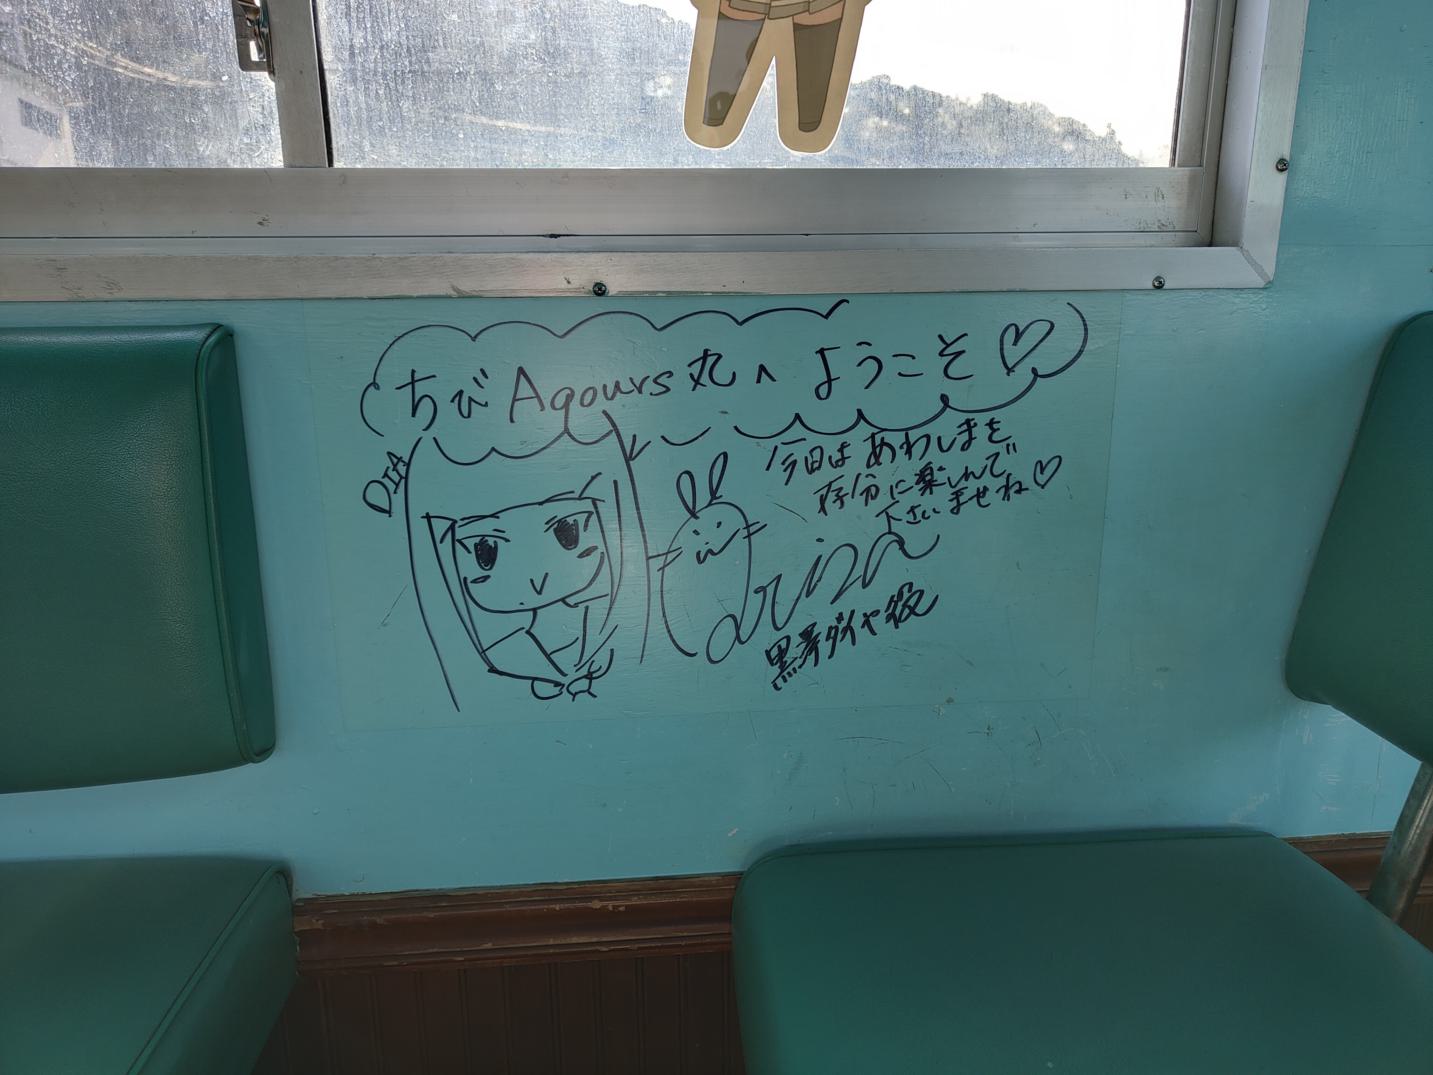 ちびAqours丸へようこそ♡
DIA
今日はあわしまを
存分に楽しんで
下さいませね♡
Arisa
黒澤ダイヤ役